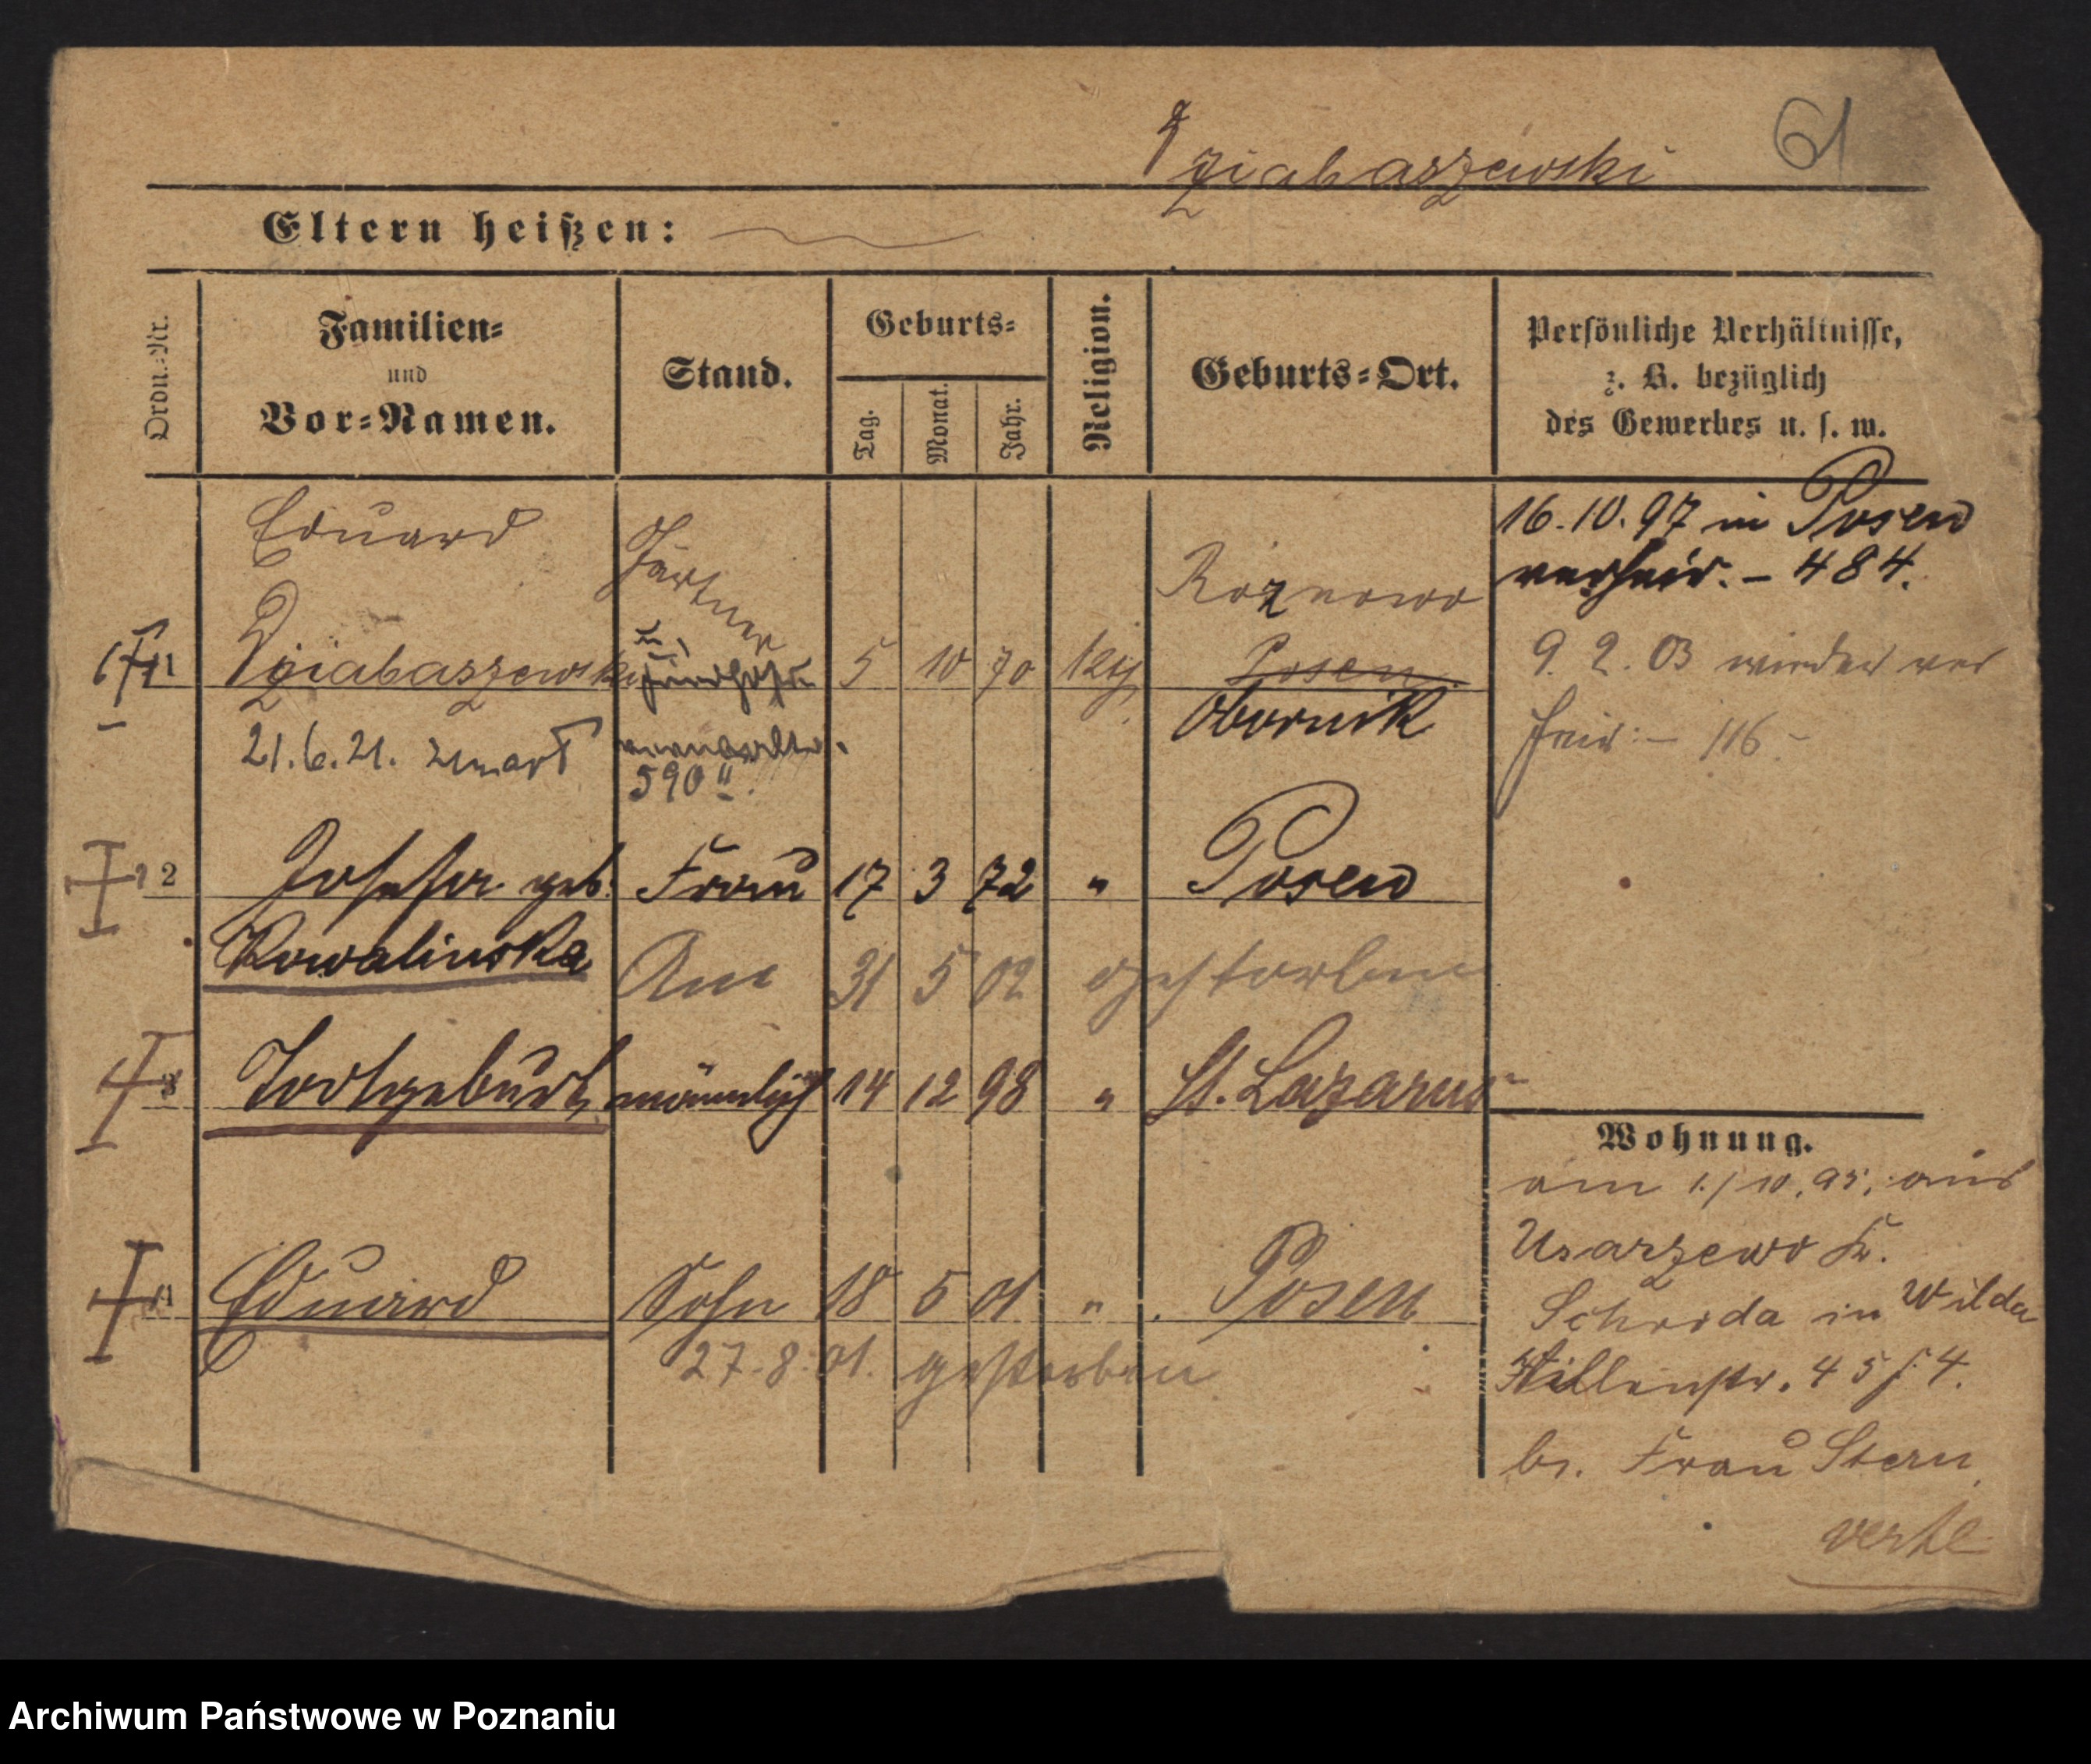 61
Dziabaszewski
Eltern heißen:
Ordn.-Nr.
Familien-
und
Vor-Namen.
Stand.
Geburts-
Tag.
Monat.
Jahr.
Religion.
Geburts-Ort.
Persönliche Verhältnisse,
z. B. bezüglich
des Gewerbes u. s. w.
Eduard
Gärtner
16.10.97 in Posen
verheir. - 484.
Roznowo
1 Dziabaszewski 5 10 70 Posen
9. 2. 03 wieder ver
Obornik
heir: - 116 -
21.6.21. zmarł
590
2 Josefa geb. Frau 17 3 72 " Posen
Kowalinska
Am 31 5 02 gestorben
3 Todtgeburt männlich 14 12 98 " St. Lazarus
Wohnung.
am 1./10.95. aus
Usarzewo Kr.
4 Eduard Sohn 18 5 01 " Posen
Schroda in Wilda
27.8.01. gestorben
45
4.
bei Frau Stern
verte
Archiwum Państwowe w Poznaniu